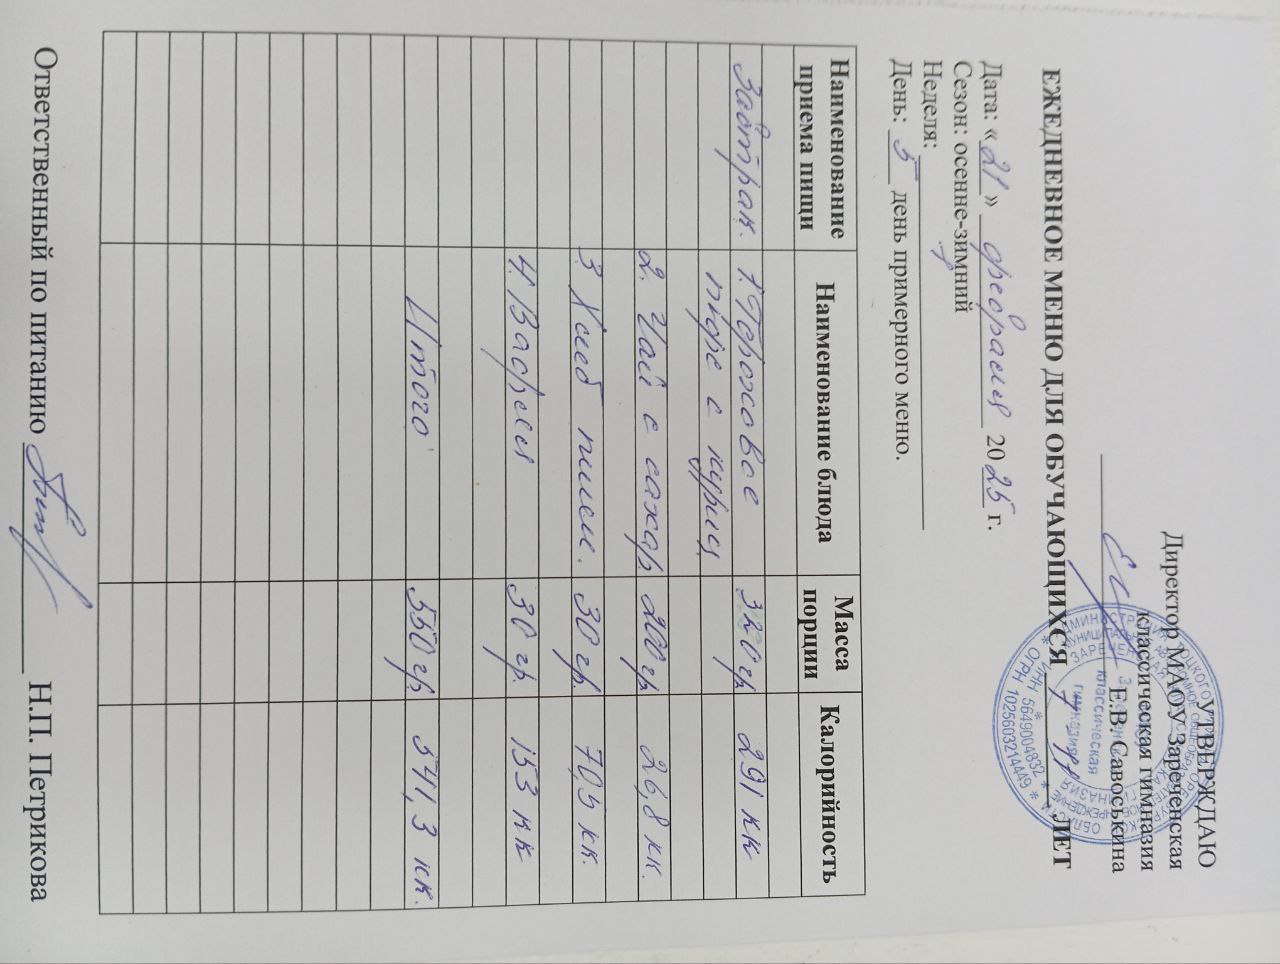 УТВЕРЖДАЮ
Директор МАОУ Зареченская
классическая гимназия
Е.В. Савоськина
ЕЖЕДНЕВНОЕ МЕНЮ ДЛЯ ОБУЧАЮЩИХСЯ ЛЕТ
Дата: «21» февраля 2025 г.
Сезон: осенне-зимний
Неделя:
День: 5 день примерного меню.
Наименование приема пищи Наименование блюда Масса порции Калорийность
Завтрак 1. Гороховое 320 гр 291 кк
пюре с куриц
2. Чай с сахар 200 гр 26,8 кк.
3. Хлеб пшен. 30 гр. 70,5 кк.
4. Вафли 30 гр. 153 кк
Итого 550 гр. 541,3 кк.
Ответственный по питанию Н.П. Петрикова
ИНН 5649004832
ОГРН 1025603214449
Зареченская
классическая
гимназия